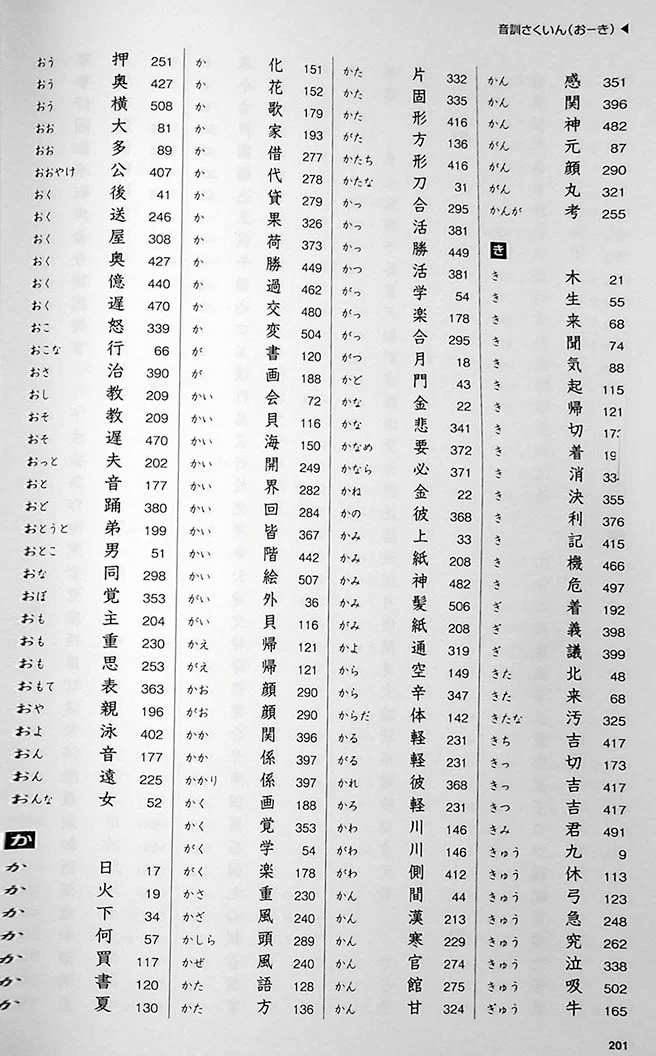 音訓さくいん(おーき)◀
おう 押 251
おう 奥 427
おう 横 508
おお 大 81
おお 多 89
おおやけ 公 407
おく 後 41
おく 送 246
おく 屋 308
おく 奥 427
おく 億 440
おく 遅 470
おこ 怒 339
おこな 行 66
おさ 治 390
おし 教 209
おそ 教 209
おそ 遅 470
おっと 夫 202
おと 音 177
おど 踊 380
おとうと 弟 199
おとこ 男 51
おな 同 298
おぼ 覚 353
おも 主 204
おも 重 230
おも 思 253
おもて 表 363
おや 親 196
およ 泳 402
おん 音 177
おん 遠 225
おんな 女 52
か
か 日 17
か 火 19
か 下 34
か 何 57
か 買 117
か 書 120
か 夏 130
か 化 151
か 花 152
か 歌 179
か 家 193
か 借 277
か 代 278
か 貸 279
か 果 326
か 荷 373
か 勝 449
か 過 462
か 交 480
か 変 504
が 書 120
が 画 188
かい 会 72
かい 貝 116
かい 海 150
かい 開 249
かい 界 282
かい 回 284
かい 皆 367
かい 階 442
かい 絵 507
がい 外 36
がい 貝 116
かえ 帰 121
がえ 帰 121
かお 顔 290
がお 顔 290
かか 関 396
かか 係 397
かかり 係 397
かく 画 188
かく 覚 353
がく 学 54
がく 楽 178
かさ 重 230
かざ 風 240
かしら 頭 289
かぜ 風 240
かた 語 128
かた 方 136
かた 片 332
かた 固 335
かた 形 416
がた 方 136
かたち 形 416
かたな 刀 31
かっ 合 295
かっ 活 381
かっ 勝 449
かつ 活 381
がっ 学 54
がっ 楽 178
がっ 合 295
がつ 月 18
かど 門 43
かな 金 22
かな 悲 341
かなめ 要 372
かなら 必 371
かね 金 22
かの 彼 368
かみ 上 33
かみ 紙 208
かみ 神 482
かみ 髪 506
がみ 紙 208
かよ 通 319
から 空 149
から 辛 347
からだ 体 142
かる 軽 231
がる 軽 231
かれ 彼 368
かろ 軽 231
かわ 川 146
がわ 川 146
がわ 側 412
かん 間 44
かん 漢 213
かん 寒 229
かん 官 274
かん 館 275
かん 甘 324
かん 感 351
かん 関 396
かん 神 482
がん 元 87
がん 顔 290
がん 丸 321
かんが 考 255
き
き 木 21
き 生 55
き 来 68
き 聞 74
き 気 88
き 起 115
き 帰 121
き 切
き 着
き 消
き 決 355
き 利 376
き 記 415
き 機 466
き 危 497
ぎ 着 192
ぎ 義 398
ぎ 議 399
きた 北 48
きた 来 68
きたな 汚 325
きち 吉 417
きっ 切 173
きっ 吉 417
きつ 吉 417
きみ 君 491
きゅう 九 9
きゅう 休 113
きゅう 弓 123
きゅう 急 248
きゅう 究 262
きゅう 泣 338
きゅう 吸 502
ぎゅう 牛 165
201